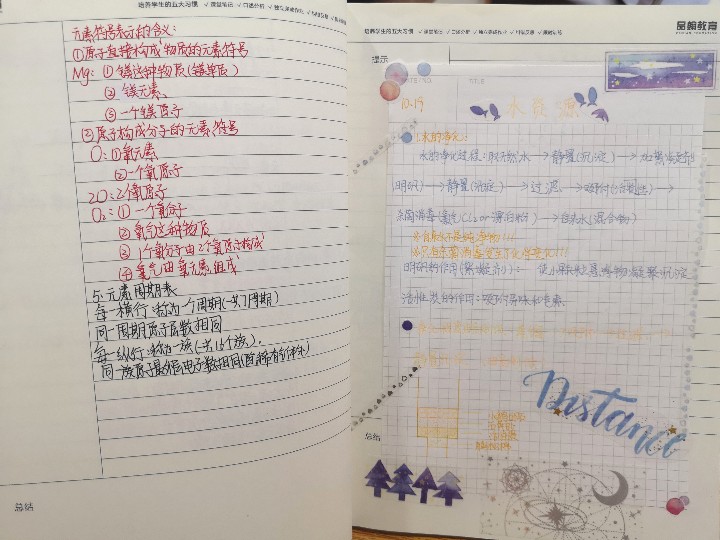 培养学生的五大习惯 ✓课堂笔记 ✓口述分析 ✓独立完成作业
元素符号表示的含义:
①原子直接构成物质的元素符号
Mg: ①镁这种物质(镁单质)
② 镁元素
③一个镁原子
②原子构成分子的元素符号
O: ①氧元素
②一个氧原子
2O: 2个氧原子
O₂: ① 一个氧分子
② 氧气这种物质
③ 1个氧分子由2个氧原子构成
④ 氧气由氧元素组成
5.元素周期表
每一横行:称为一个周期(一共7周期)
同一周期原子层数相同
每一纵行:称为一族(一共16个族).
同一族原子最外层电子数相同
总结
培养学生的五大习惯 ✓课堂笔记 ✓口述分析 ✓独立完成作业
品翰教育
提示:
TITLE
10.19
水资源
水的净化:
水的净化过程:取天然水→静置(沉淀)→加絮凝剂
(明矾)→静置(沉淀)→过滤→吸附(活性炭)→
杀菌消毒(氯气Cl₂or漂白粉)→自来水(混合物)
明矾的作用(絮凝剂):使小颗粒悬浮物凝聚沉淀
活性炭的作用:吸附异味和色素.
Distance
总结